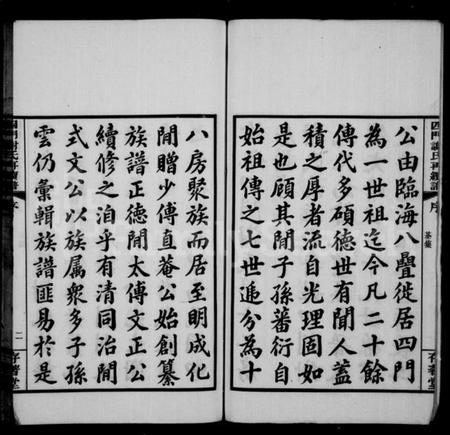 四門謝氏再續譜
序
公由臨海八疊徙居四門
為一世祖迄今凡二十餘
傳代多碩德世有聞人蓋
積之厚者流自光理固如
是也顧其間子孫蕃衍自
始祖傳之七世遞分為十
八房聚族而居至明成化
間贈少傳直菴公始創纂
族譜正德間太傳文正公
續修之洎乎有清同治間
式文公以族属衆多子孫
雲仍彙輯族譜匪易於是
二
存著堂